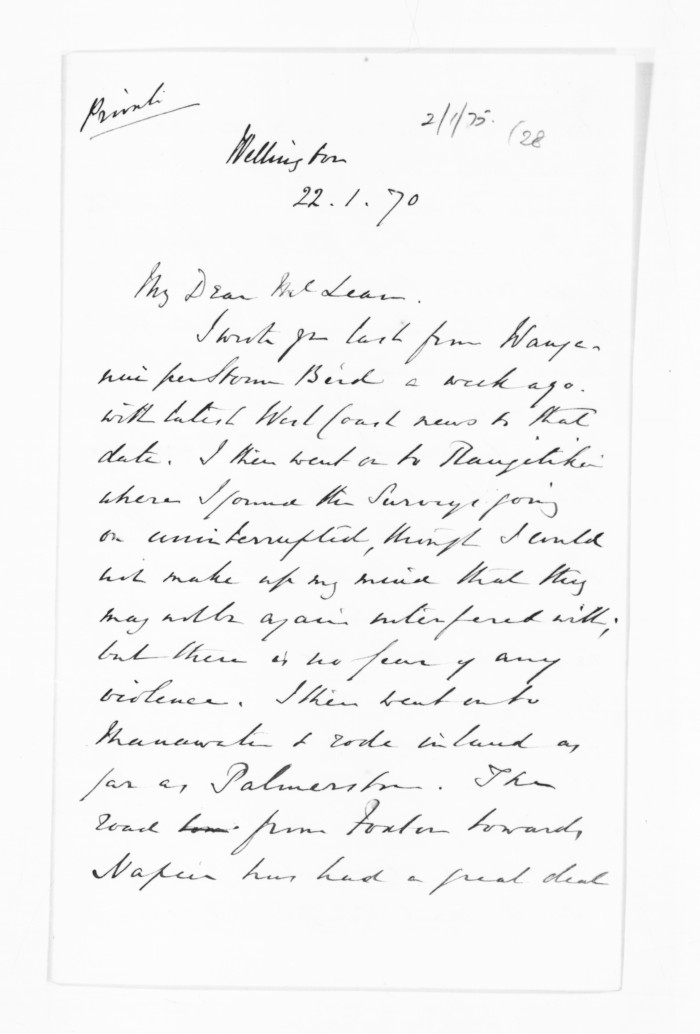 Private
2/1/75. (28
Wellington
22.1.70
My Dear McLean.
I wrote you last from Wanga-
nui per Storm Bird a week ago.
with latest West Coast news to that
date. I then went on to Rangitikei
where I found the Surveys going
on uninterrupted, though I could
not make up my mind that they
may not be again interfered with;
but there is no fear of any
violence. I then went on to
Manawatu & rode inland as
far as Palmerston. The
road from Foxton towards
Napier has had a great deal